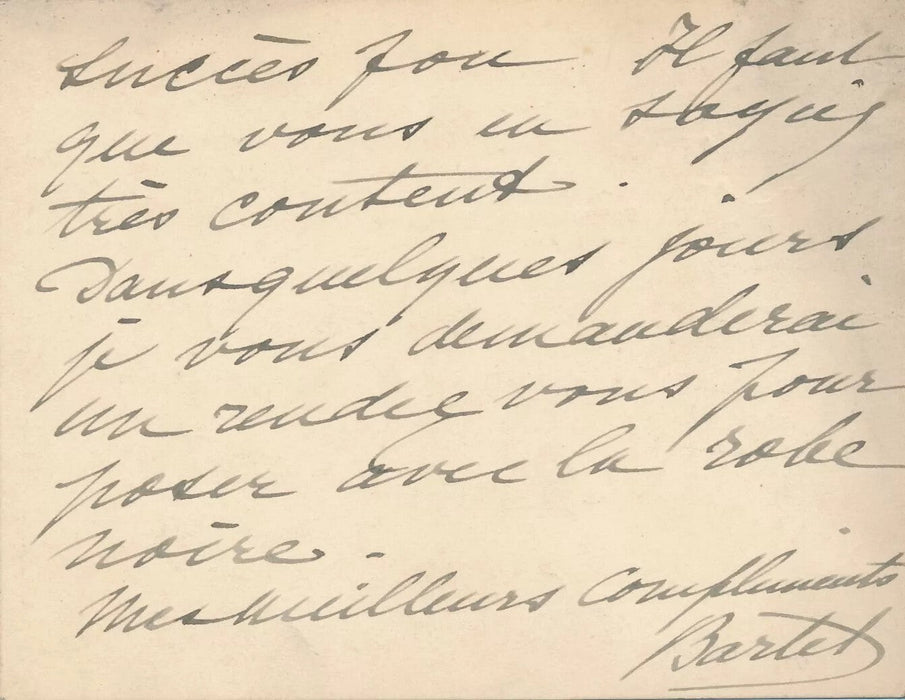 Succès fou. Il faut
que vous en soyiez
très content.
Dans quelques jours
je vous demanderai
un rendez vous pour
poser avec la robe
noire.
Mes meilleurs compliments
Bartet